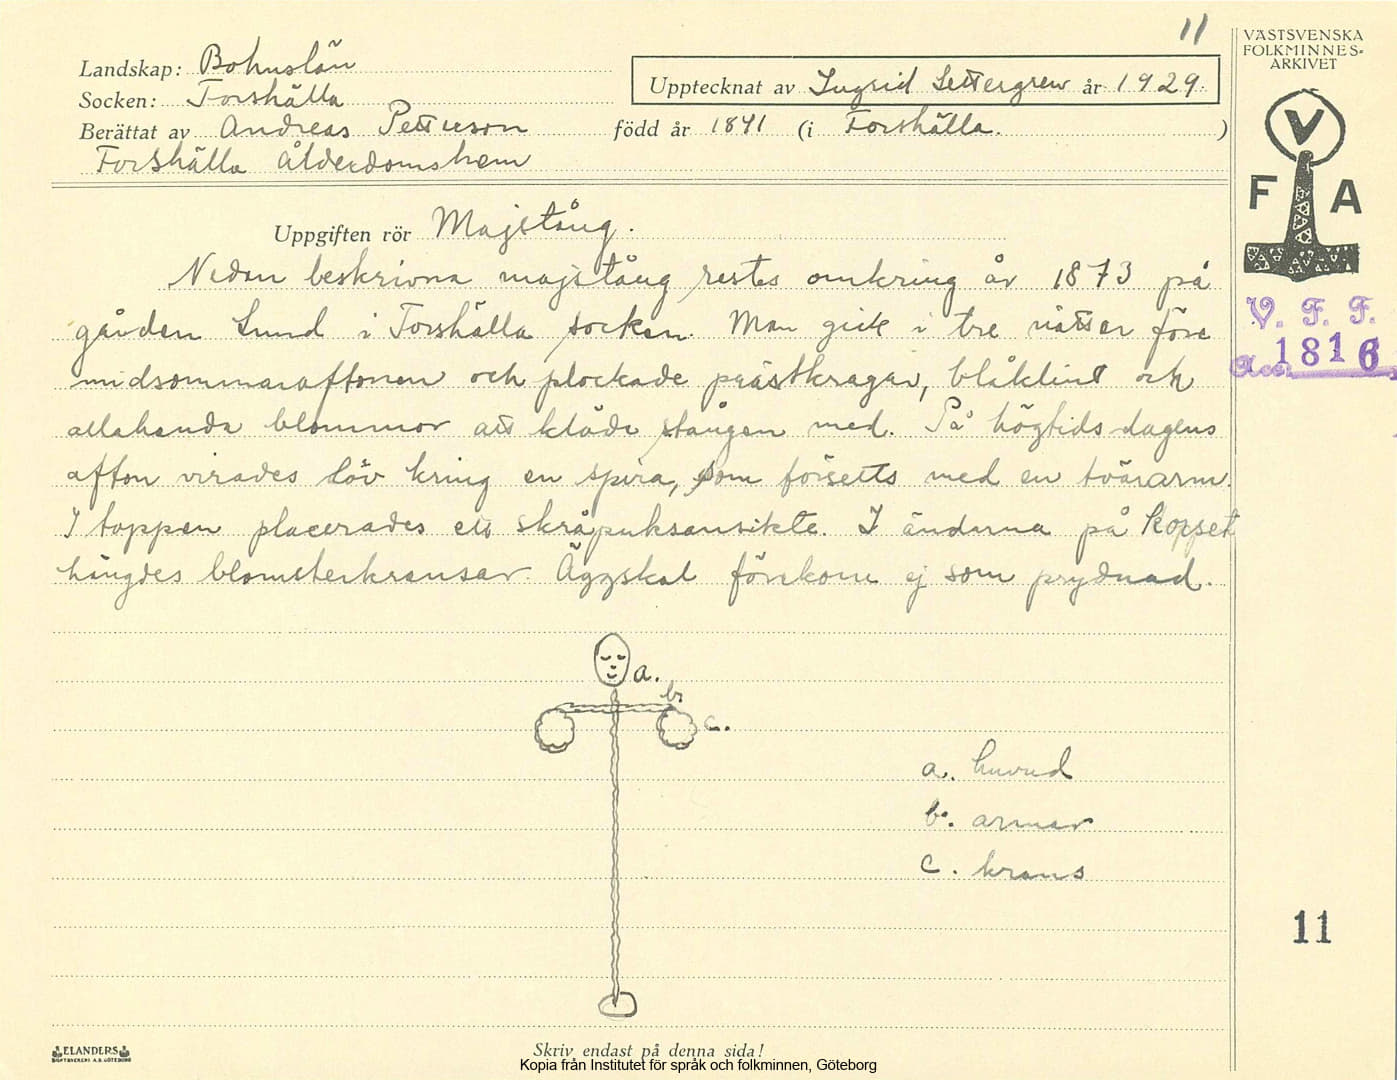 11
VÄSTSVENSKA
FOLKMINNES-
ARKIVET
Landskap: Bohuslän
Upptecknat av Ingrid Settergren år 1929.
Socken: Forshälla
Berättat av Andreas Petterson född år 1841 (i Forshälla. )
Forshälla Ålderdomshem
V
F A
Uppgiften rör Majstång.
Nedan beskrivna majstång restes omkring år 1873 på
gården Lund i Forshälla socken. Man gick i tre nätter före
midsommaraftonen och plockade prästkragar, blåklint och
allahanda blommor att kläda stången med. På högtidsdagens
afton virades löv kring en spira, som försetts med en tvärarm.
I toppen placerades ett skråpuksansikte. I ändarna på korset
hängdes blomsterkransar. Äggskal förekom ej som prydnad.
V. F. F.
Acc. 1816
a.
b.
c.
a. huvud
b. armar
c. krans
11
ELANDERS
BOKTRYCKERI A.B. GÖTEBORG
Skriv endast på denna sida!
Kopia från Institutet för språk och folkminnen, Göteborg